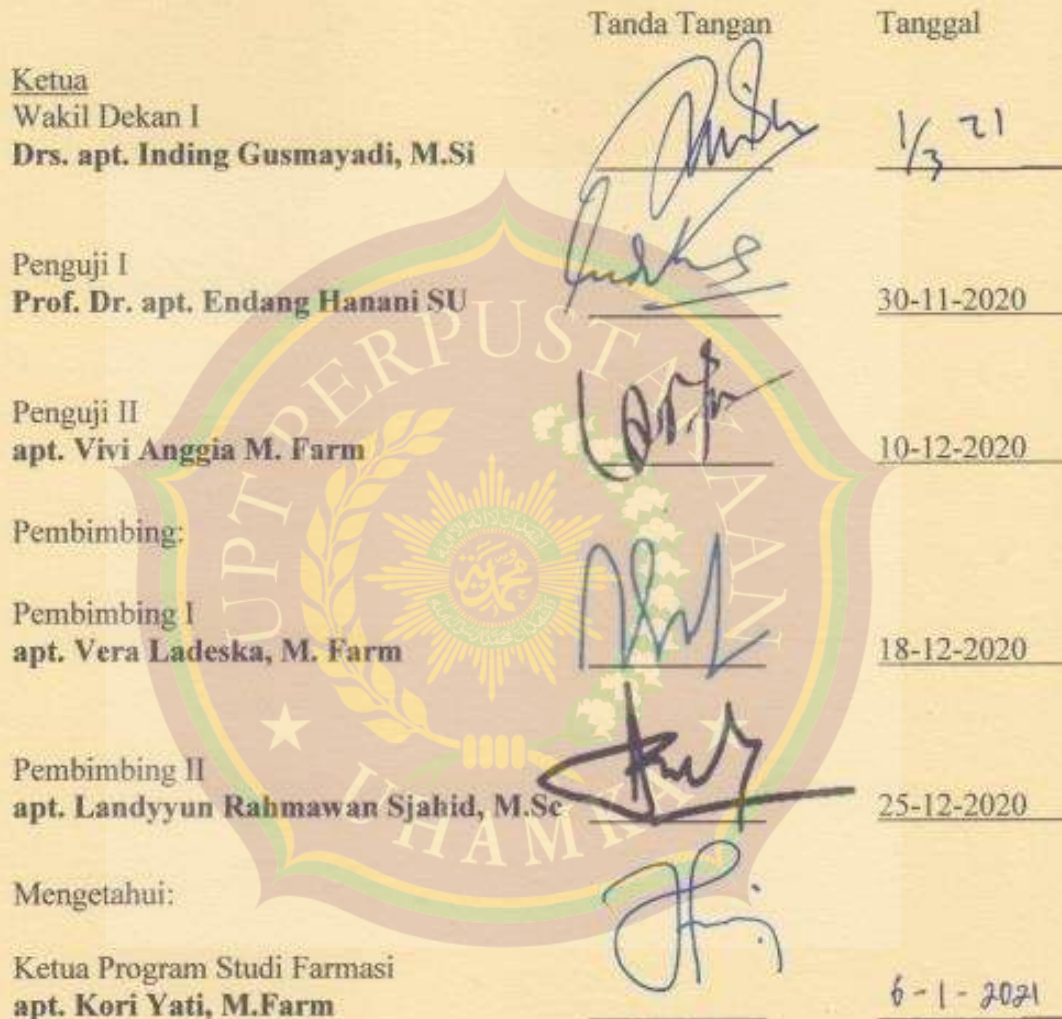 Tanda Tangan Tanggal
Ketua
Wakil Dekan I
Drs. apt. Inding Gusmayadi, M.Si 1/3 21
Penguji I
Prof. Dr. apt. Endang Hanani SU 30-11-2020
Penguji II
apt. Vivi Anggia M. Farm 10-12-2020
Pembimbing:
Pembimbing I
apt. Vera Ladeska, M. Farm 18-12-2020
Pembimbing II
apt. Landyyun Rahmawan Sjahid, M.Sc 25-12-2020
Mengetahui:
Ketua Program Studi Farmasi
apt. Kori Yati, M.Farm 6-1-2021
UPT PERPUSTAKAAN
UHAMKA